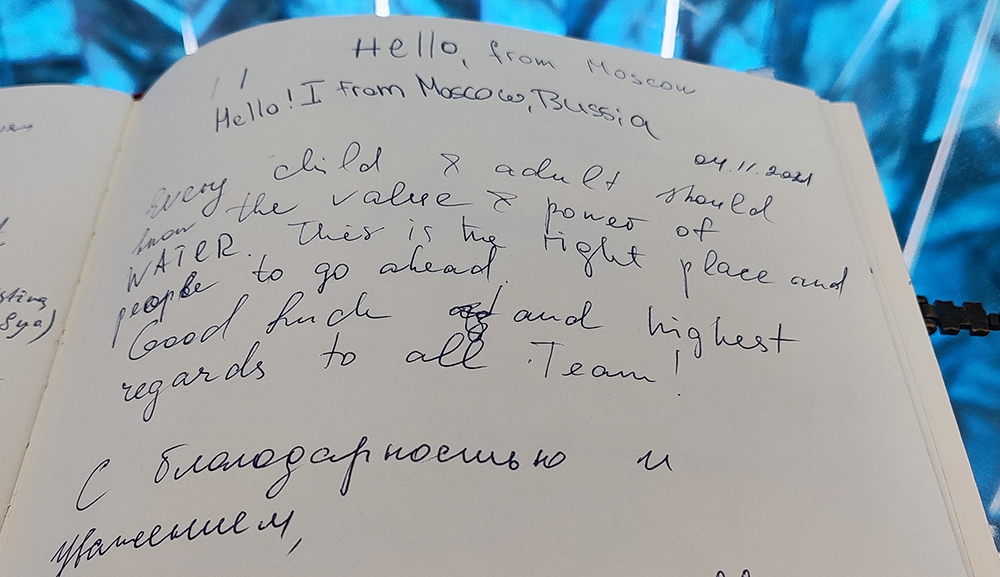 Hello, from Moscow
Hello! I from Moscow, Bussia
04.11.2021
Every child & adult should
know the value & power of
WATER. This is the right place and
people to go ahead.
Good luck and highest
regards to all Team!
С благодарностью и
уважением,
sting
Sya)